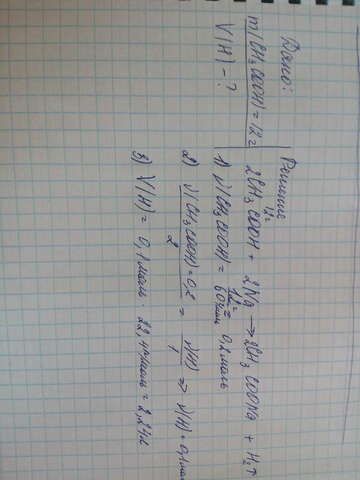 Дано:
m(CH₃COOH) = 12г
V(H) - ?
Решение
12г
2CH₃COOH + 2Na → 2CH₃COONa + H₂↑
1) ν(CH₃COOH) = 12г / 60г/моль = 0,2 моль
2) ν(CH₃COOH) = 0,2 / 2 = ν(H) / 1 ⇒ ν(H) = 0,1 моль
3) V(H) = 0,1 моль · 22,4 л/моль = 2,24 л